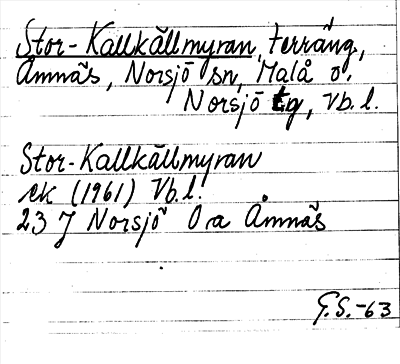 Stor-Kallkällmyran, terräng,
Åmnäs, Norsjö sn, Malå o.
Norsjö tg, Vb. l.
Stor-Kallkällmyran
ek (1961) Vb. l.
23 J Norsjö O a Åmnäs
G.S.-63